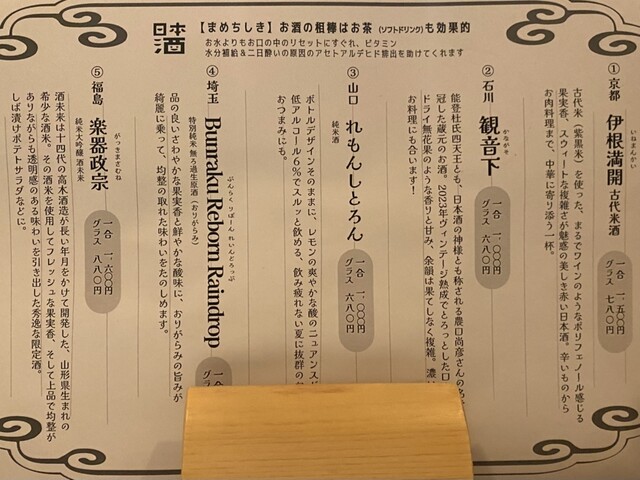 日本酒
【まめちしき】お酒の相棒はお茶(ソフトドリンク)も効果的
お水よりもお口の中のリセットにすぐれ、ビタミン
水分補給&二日酔いの原因のアセトアルデヒド排出を助けてくれます
① 京都 伊根満開 古代米酒
いねまんかい
一合 一、五〇〇円
グラス 七八〇円
古代米(紫黒米)を使った、まるでワインのようなポリフェノール感じる
果実香、スウィートな複雑さが魅惑の美しき赤い日本酒。辛いものから
お肉料理まで、中華に寄り添う一杯。
② 石川 観音下
かながそ
一合 一、〇〇〇円
グラス 六八〇円
能登杜氏四天王とも、日本酒の神様とも称される農口尚彦さんの名
冠した蔵元のお酒。2023年ヴィンテージ熟成でとろっとした口
ドライ無花果のような香りと甘み、余韻は果てしなく複雑。濃
お料理にも合います!
③ 山口 れもんしとろん
純米酒
一合 一、〇〇〇円
グラス 六八〇円
ボトルデザインそのままに、レモンの爽やかな酸のニュアンス
低アルコール6%でスルッと飲める、飲み疲れない夏に抜群の
おつまみにも。
④ 埼玉 Bunraku Reborn Raindrop
ぶんらくりぼーん れいんどろっぷ
特別純米 無ろ過生原酒(おりがらみ)
一合
グラ
品の良いさわやかな果実香と鮮やかな酸味に、おりがらみの旨みが
綺麗に乗って、均整の取れた味わいをたのしめます。
⑤ 福島 楽器政宗
がっきまさむね
純米大吟醸 酒未来
一合 一、六〇〇円
グラス 八八〇円
酒未来は十四代の高木酒造が長い年月をかけて開発した、山形県生まれの
希少な酒米。その酒米を使用してフレッシュな果実香、そして上品で均整が
ありながらも透明感のある味わいを引き出した秀逸な限定酒。
しば漬けポテトサラダなどに。